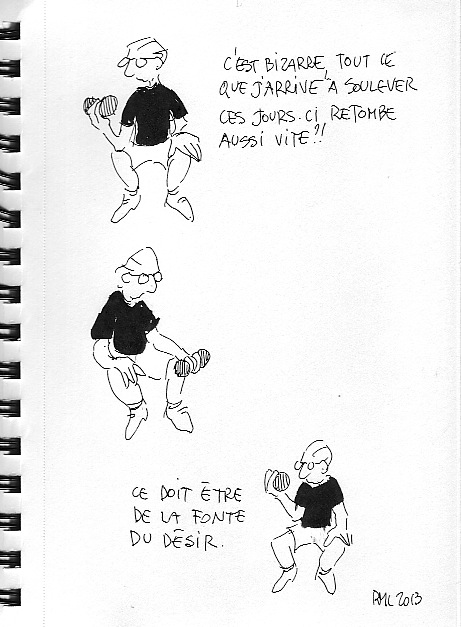 C'EST BIZARRE, TOUT CE
QUE J'ARRIVE À SOULEVER
CES JOURS-CI RETOMBE
AUSSI VITE?!
CE DOIT ÊTRE
DE LA FONTE
DU DÉSIR.
RML 2013